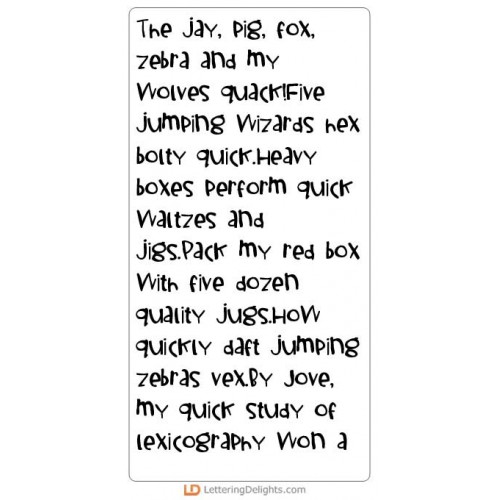 The jay, pig, fox,
zebra and my
wolves quack!Five
jumping wizards hex
bolty quick.Heavy
boxes perform quick
waltzes and
jigs.Pack my red box
with five dozen
quality jugs.How
quickly daft jumping
zebras vex.By Jove,
my quick study of
lexicography won a
LD LetteringDelights.com